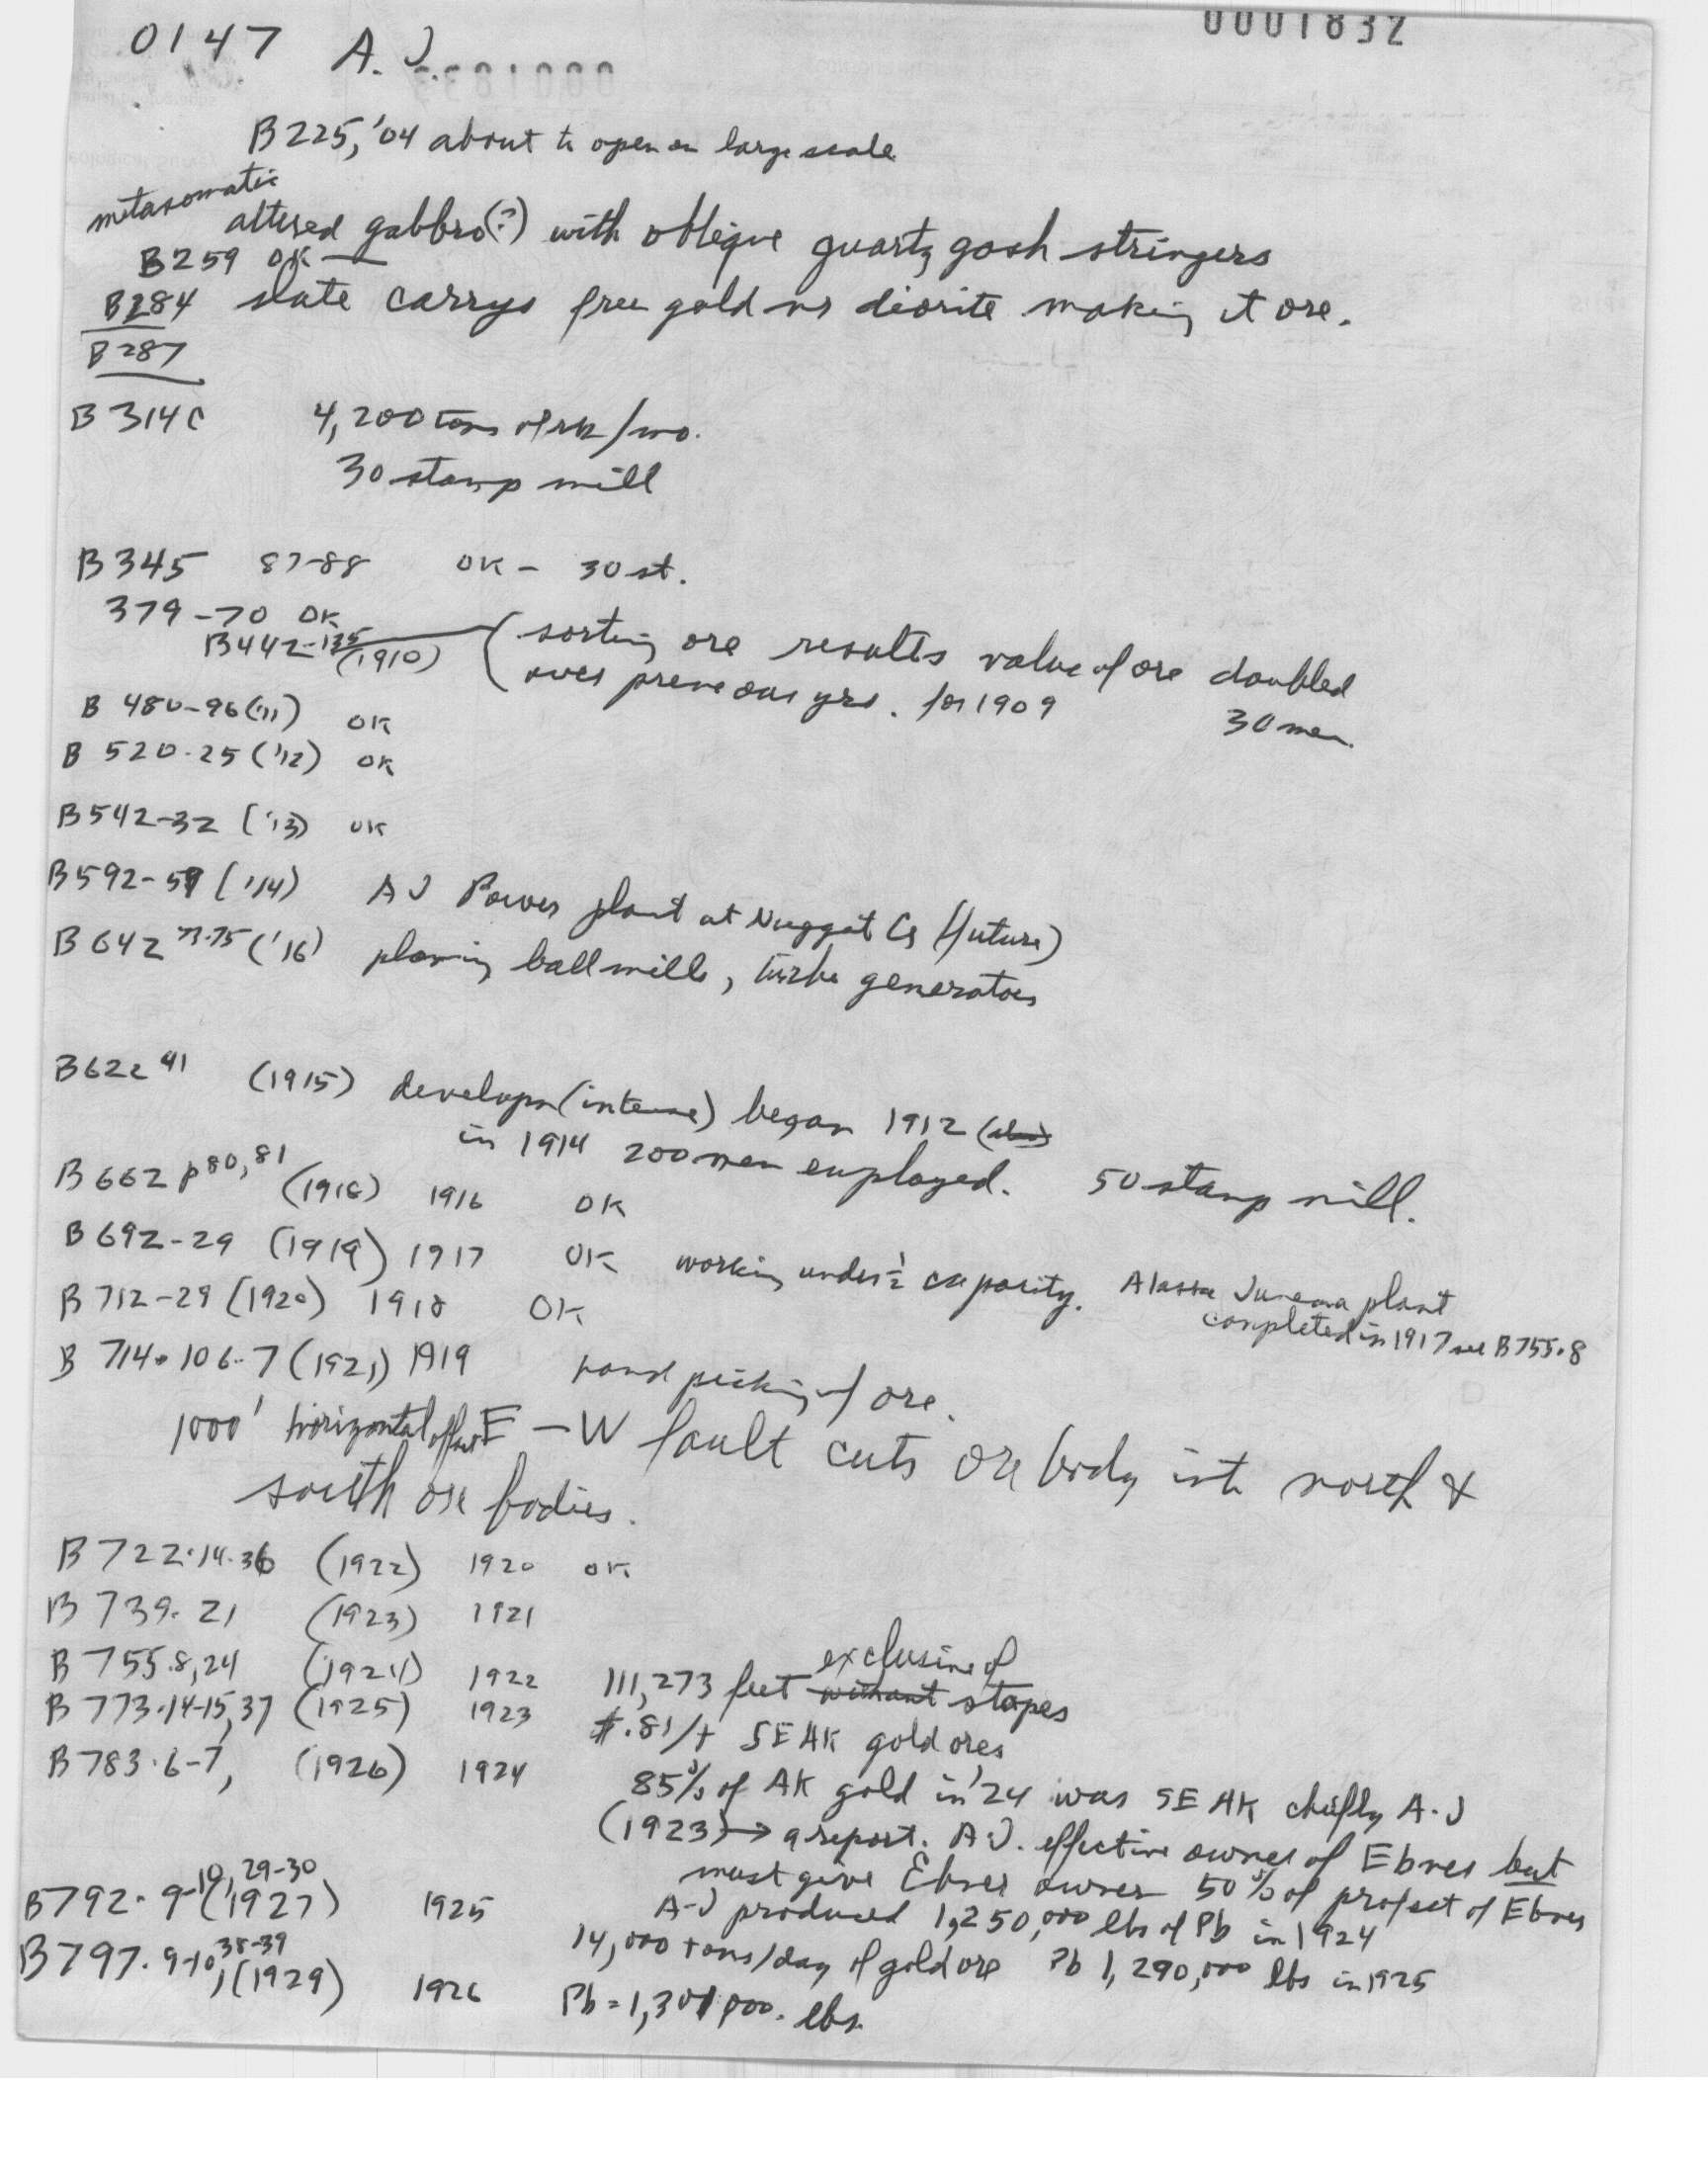 0001832
0147 A.J.
B225, '04 about to open on large scale
metasomatic
altered gabbro(?) with oblique quartz gash stringers
B259 OK
B284 slate carrys free gold vs diorite making it ore.
B287
B314C 4,200 tons of rk/mo.
30 stamp mill
B345 87-88 OK - 30 st.
379-70 OK
B442-135 (1910) (sorting ore results value of ore doubled
over preveous yrs. for 1909 30 men
B 480-96('11) OK
B 520-25('12) OK
B542-32 ('13) OK
B592-59 ('14) AJ Power plant at Nugget Cr (future)
B642 73-75 ('16) planing ball mills, turbo generators
B622 41 (1915) developm(intense) began 1912
in 1914 200 men employed. 50 stamp mill.
B662 p80,81 (1918) 1916 OK
B692-29 (1919) 1917 OK working under ½ capacity. Alaska Juneau plant
completed in 1917 see B755.8
B712-29 (1920) 1918 OK
B 714.106-7 (1921) 1919 hand picking of ore.
1000' horizontal offset E-W fault cuts ore body into north &
south ore bodies.
B722.14.36 (1922) 1920 OK
B 739.21 (1923) 1921
B 755.8,24 (1924) 1922 111,273 feet without exclusive of stopes
B 773.14-15,37 (1925) 1923 $.81/t SE AK gold ores
B783.6-7, (1926) 1924 85% of AK gold in '24 was SE AK chiefly A-J
(1923) → report. A.J. effective owner of Ebner but
must give Ebner owner 50% of profset of Ebner
B792.9-10,29-30 (1927) 1925 A-J produced 1,250,000 lbs of Pb in 1924
14,000 tons/day of gold ore Pb 1,290,000 lbs in 1925
B797.9-10,38-39 (1929) 1926 Pb = 1,301,000. lbs.